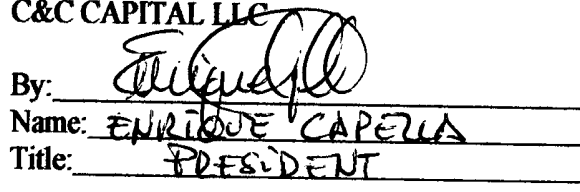 C&C CAPITAL LLC
By:
Name: ENRIQUE CAPELLA
Title: PRESIDENT